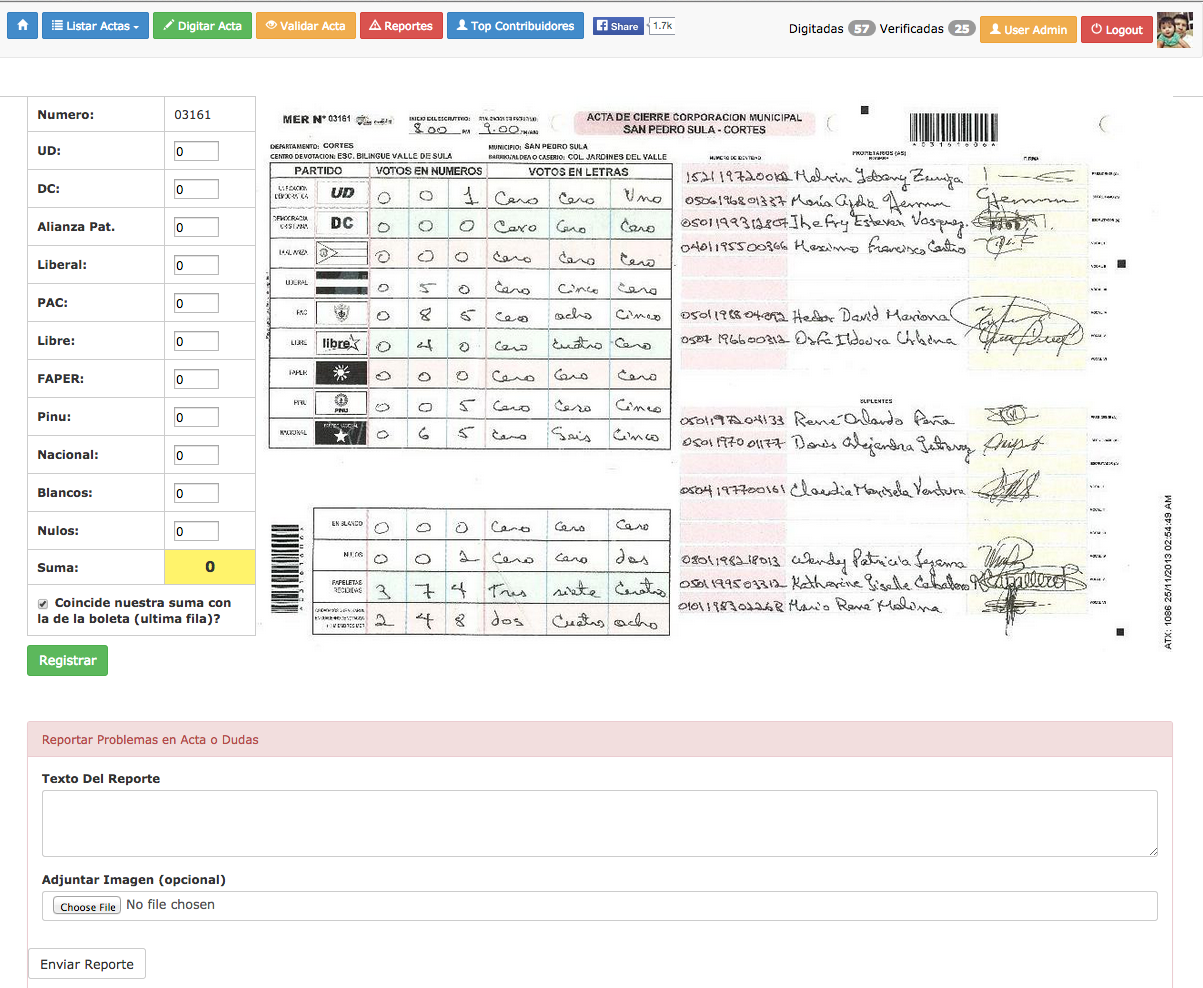 Listar Actas Digitar Acta Validar Acta Reportes Top Contribuidores Share 1.7k Digitadas 57 Verificadas 25 User Admin Logout
Numero: 03161
UD: 0
DC: 0
Alianza Pat. 0
Liberal: 0
PAC: 0
Libre: 0
FAPER: 0
Pinu: 0
Nacional: 0
Blancos: 0
Nulos: 0
Suma: 0
Coincide nuestra suma con
la de la boleta (ultima fila)?
Registrar
MER Nº 03161
8:00 PM 9:00
ACTA DE CIERRE CORPORACION MUNICIPAL
SAN PEDRO SULA - CORTES
DEPARTAMENTO: CORTES MUNICIPIO: SAN PEDRO SULA
CENTRO DE VOTACION: ESC. BILINGUE VALLE DE SULA BARRIO/ALDEA O CASERIO: COL. JARDINES DEL VALLE
PARTIDO VOTOS EN NUMEROS VOTOS EN LETRAS
UD 0 0 1 Cero Cero Uno
DEMOCRACIA CRISTIANA DC 0 0 0 Cero Cero Cero
LA ALIANZA 0 0 0 Cero Cero Cero
LIBERAL 0 5 0 Cero Cinco Cero
PAC 0 8 5 Cero ocho Cinco
LIBRE libre 0 4 0 Cero Cuatro Cero
FAPER 0 0 0 Cero Cero Cero
PINU PINU 0 0 5 Cero Cero Cinco
NACIONAL 0 6 5 Cero Seis Cinco
EN BLANCO 0 0 0 Cero Cero Cero
NULOS 0 0 2 Cero Cero dos
PAPELETAS RECIBIDAS 3 7 4 Tres siete Cuatro
2 4 8 dos Cuatro ocho
PROPIETARIOS (AS)
NUMERO DE IDENTIDAD NOMBRE FIRMA
Melvin Jobany Zuniga
0506196801337 Maria
Esteven Vasquez
0401195500366 Maximo Francisco Castro
Hector David Mariona
SUPLENTES
René Orlando Peña
0501197001177 Alejandra
0504197700161 Claudia Marisela Ventura
Wendy Patricia
0501199503312 Katherine Gisele Caballero
0101198302268 Mario René Molina
ATX: 1086 25/11/2013 02:54:49 AM
Reportar Problemas en Acta o Dudas
Texto Del Reporte
Adjuntar Imagen (opcional)
Choose File No file chosen
Enviar Reporte